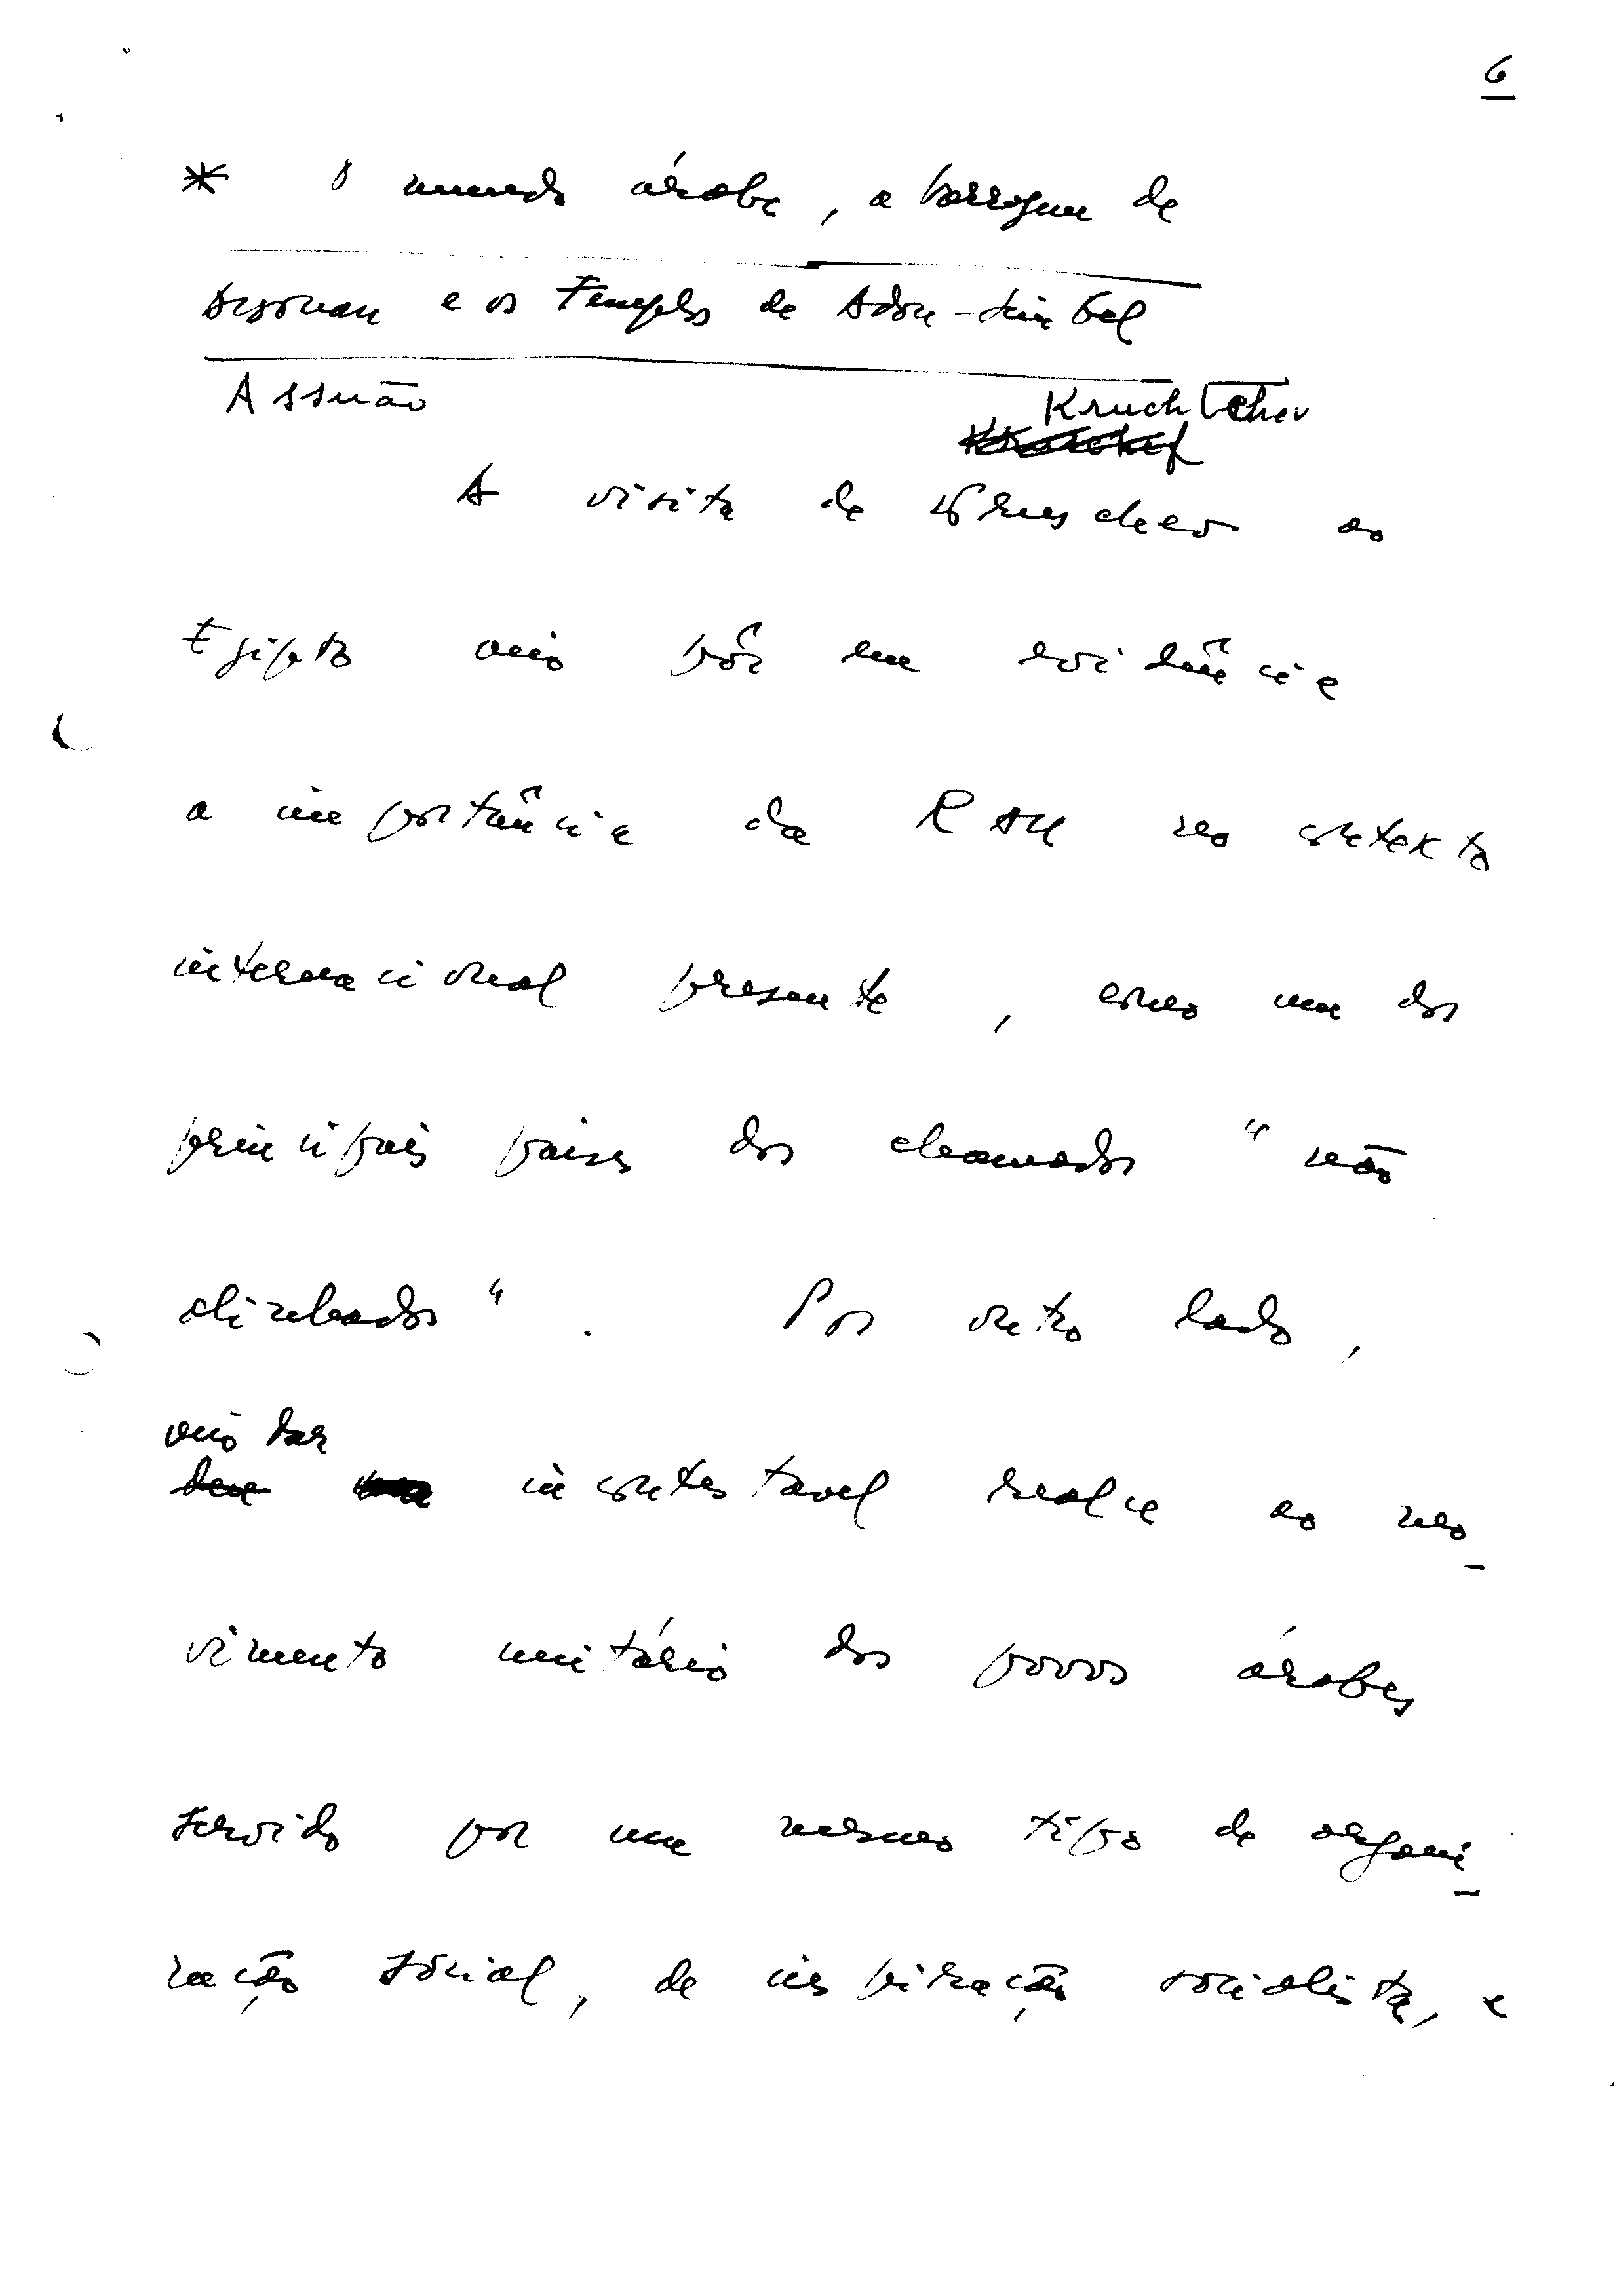 6
* O mundo árabe, a barragem de
Assouan e os Templos de Abou-Simbel
Assuão Kruchtchev
A visita de Kruschev ao
Egipto veio pôr em evidência
a importância da RAU no contexto
internacional presente, como um dos
principais paises dos chamados "não
alinhados". Por outro lado,
veio dar
incontestavel realce ao mo-
vimento unitário dos povos árabes
servido por um mesmo tipo de organi-
zação social, de inspiração socialista, e